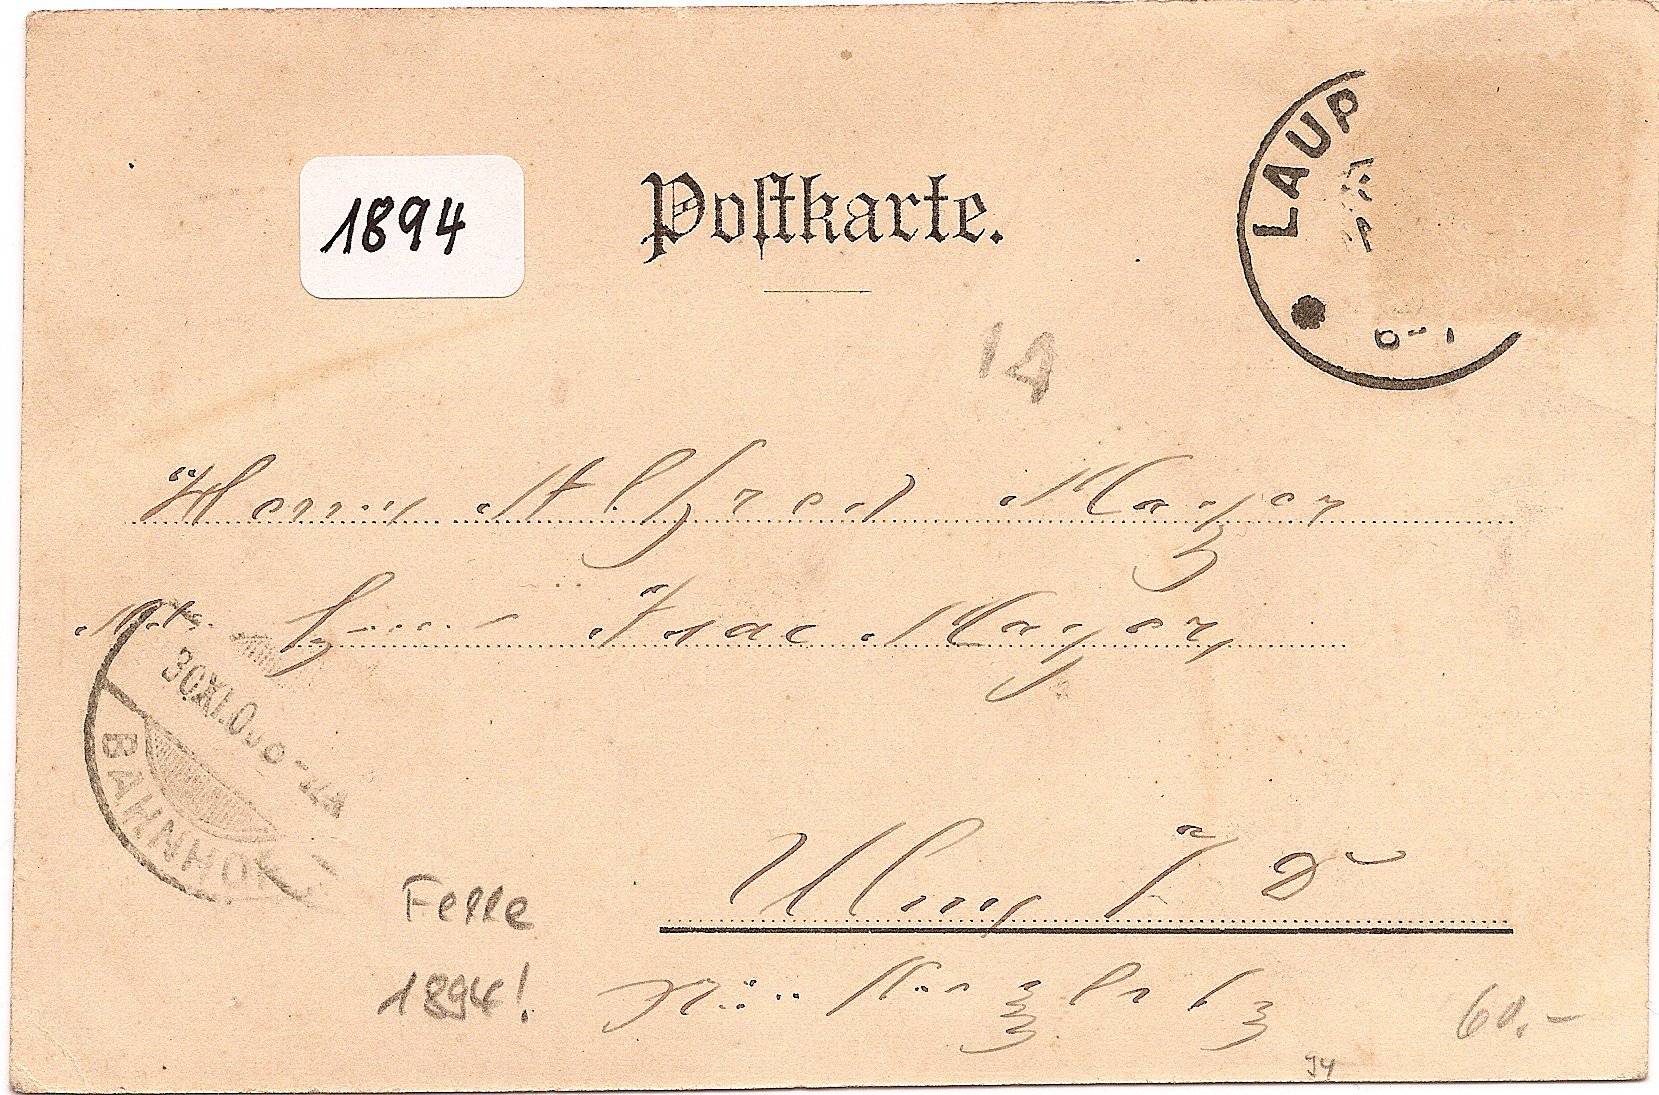 1894
Postkarte.
LAUP
14
Herrn Alfred Mayer
Isac Mayer,
30.XI.0
BAHNHOF
Ulm / D
Felle
1894!
60.-
J4